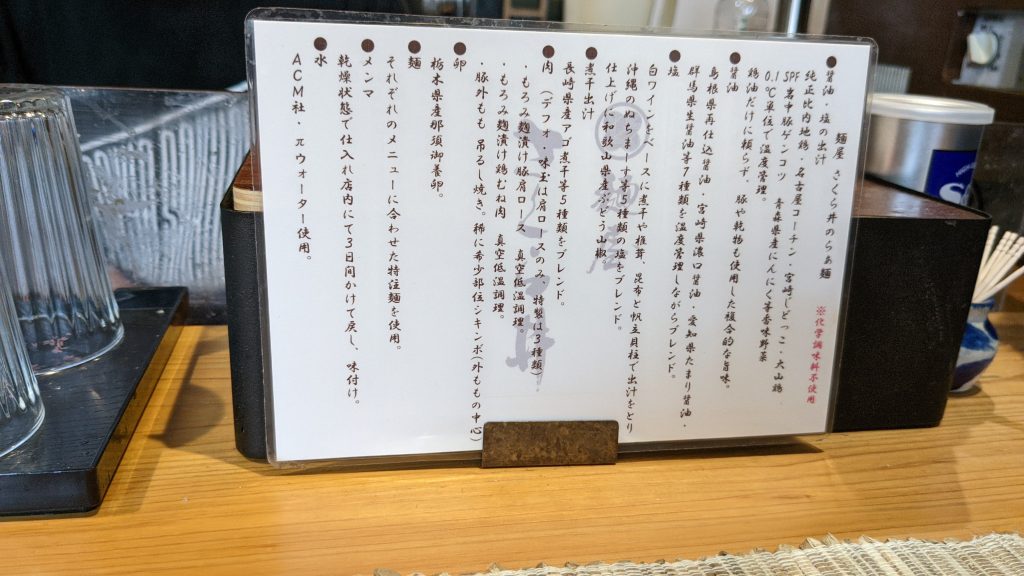 麺屋 さくら井のらぁ麺
※化学調味料不使用
●醤油・塩の出汁
純正比内地鶏・名古屋コーチン・宮崎じどっこ・大山鶏
SPF岩中豚ゲンコツ 青森県産にんにく等香味野菜
0.1℃単位で温度管理。
鶏油だけに頼らず、豚や乾物も使用した複合的な旨味。
●醤油
島根県再仕込醤油 宮崎県濃口醤油 愛知県たまり醤油・
群馬県生醤油等7種類を温度管理しながらブレンド。
●塩
白ワインをベースに煮干や椎茸、昆布と帆立貝柱で出汁をとり
沖縄 ぬちまーす等5種類の塩をブレンド。
仕上げに和歌山県産ぶどう山椒
●煮干出汁
長崎県産アゴ煮干等5種類をブレンド。
●肉 (デフ・味玉は肩ロースのみ 特製は3種類)
・もろみ麹漬け豚肩ロース 真空低温調理。
・もろみ麹漬け鶏むね肉 真空低温調理。
・豚外もも 吊るし焼き。稀に希少部位シキンボ(外ももの中心)
●卵
栃木県産那須御養卵。
●麺
それぞれのメニューに合わせた特注麺を使用。
●メンマ
乾燥状態で仕入れ店内にて3日間かけて戻し、味付け。
●水
ACM社・πウォーター使用。
麺屋
さくら井